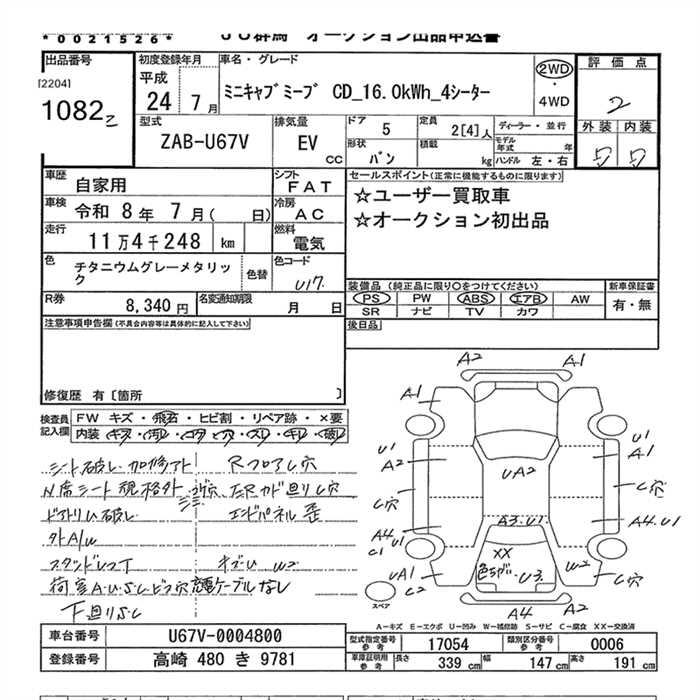 *0021526*
JU群馬 オークション出品申込書
出品番号
[2204]
1082
初度登録年月
平成
24年 7月
車名・グレード
ミニキャブミーブ CD_16.0kWh_4シーター
2WD・4WD
評価点
2
外装 内装
型式
ZAB-U67V
排気量
EV
cc
ドア 5
定員 2[4]人
形状 バン
積載 kg
ディーラー・並行
モデル年式 年
ハンドル 左・右
車歴
自家用
シフト
FAT
車検
令和 8年 7月( 日)
冷房
AC
走行
11万4千248 km
燃料
電気
色
チタニウムグレーメタリック
色替
色コード
U17.
R券
8,340円
名変通知期限 月 日
セールスポイント(正常に機能するものに限ります)
☆ユーザー買取車
☆オークション初出品
装備品(純正品に限り○をつけてください)
PS PW ABS エアB AW
SR ナビ TV カワ
新車保証書
有・無
後日品
注意事項申告欄(不具合内容等は具体的に記入して下さい)
修復歴 有[箇所 ]
検査員記入欄
FW キズ・飛石・ヒビ割・リペア跡・×要
内装・キズ・汚レ・コゲ・穴・スレ・キレ・破レ
シート破レ 加修アト
Rフロアし穴
N席シート規格外
ドアトリム破レ
エンドパネル 歪
外A/W
スタッドレスT
充電ケーブルなし
下廻りS.C
A2 A1
A1
U1
A2
C穴
A4
C1 U1
UA1
C2
UA2
A3.U1.
XX
色ちがい U3.
A4 A2
U1
A1
C穴
A4.U1
W2
C穴
スペア
A-キズ E-エクボ U-凹み W-補修跡 S-サビ C-腐食 XX-交換済
車台番号 U67V-0004800
登録番号 高崎 480 き 9781
型式指定番号 参考 17054
類別区分番号 参考 0006
車庫証明用 参考 長さ 339 cm 幅 147 cm 高さ 191 cm